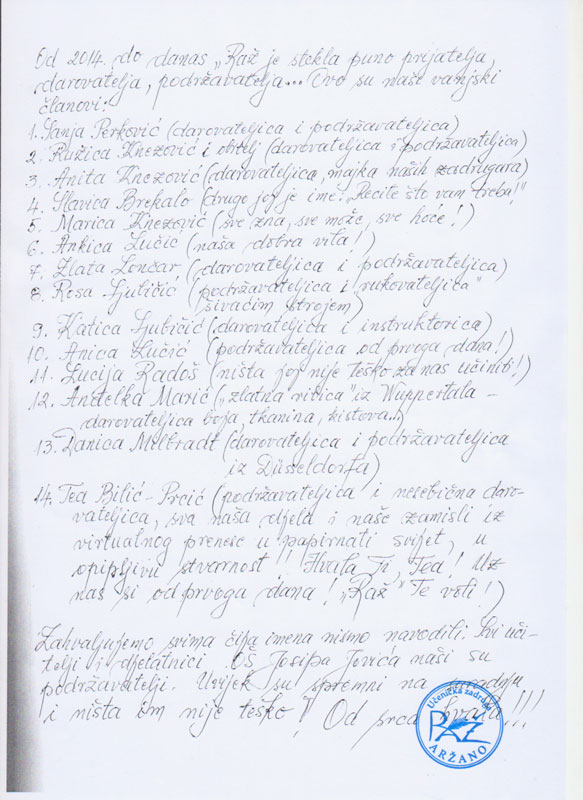 Od 2014. do danas „Raž je stekla puno prijatelja,
darovatelja, podržavatelja... Ovo su naši vanjski
članovi:
1. Sanja Perković (darovateljica i podržavateljica)
2. Ružica Knezović i obitelj (darovateljica i podržavateljica)
3. Anita Knezović (darovateljica, majka naših zadrugara)
4. Slavica Brekalo (drugo joj je ime: „Recite što vam treba!"
5. Marica Knezović (sve zna, sve može, sve hoće!)
6. Ankica Lučić (naša dobra vila!)
7. Zlata Lončar (darovateljica i podržavateljica)
8. Rosa Ljubičić (podržavateljica i „rukovateljica"
šivaćim strojem)
9. Katica Ljubičić (darovateljica i instruktorica)
10. Anica Lučić (podržavateljica od prvoga dana!)
11. Lucija Radoš (ništa joj nije teško za nas učiniti!)
12. Anđelka Marić („zlatna ribica" iz Wuppertala –
darovateljica boja, tkanina, kistova...)
13. Danica Melbradt (darovateljica i podržavateljica
iz Düsseldorfa)
14. Tea Bilić-Prcić (podržavateljica i nesebična daro-
vateljica, sva naša djela i naše zamisli iz
virtualnog prenese u papirnati svijet, u
opipljivu stvarnost!! Hvala Ti, Tea! Uz
nas si od prvoga dana! „Raž" Te voli!)
Zahvaljujemo svima čija imena nismo navodili. Svi uči-
telji i djelatnici OŠ Josipa Jovića naši su
podržavatelji. Uvijek su spremni na suradnju
i ništa im nije teško! Od srca hvala!!!
Učenička zadruga
RAŽ
ARŽANO